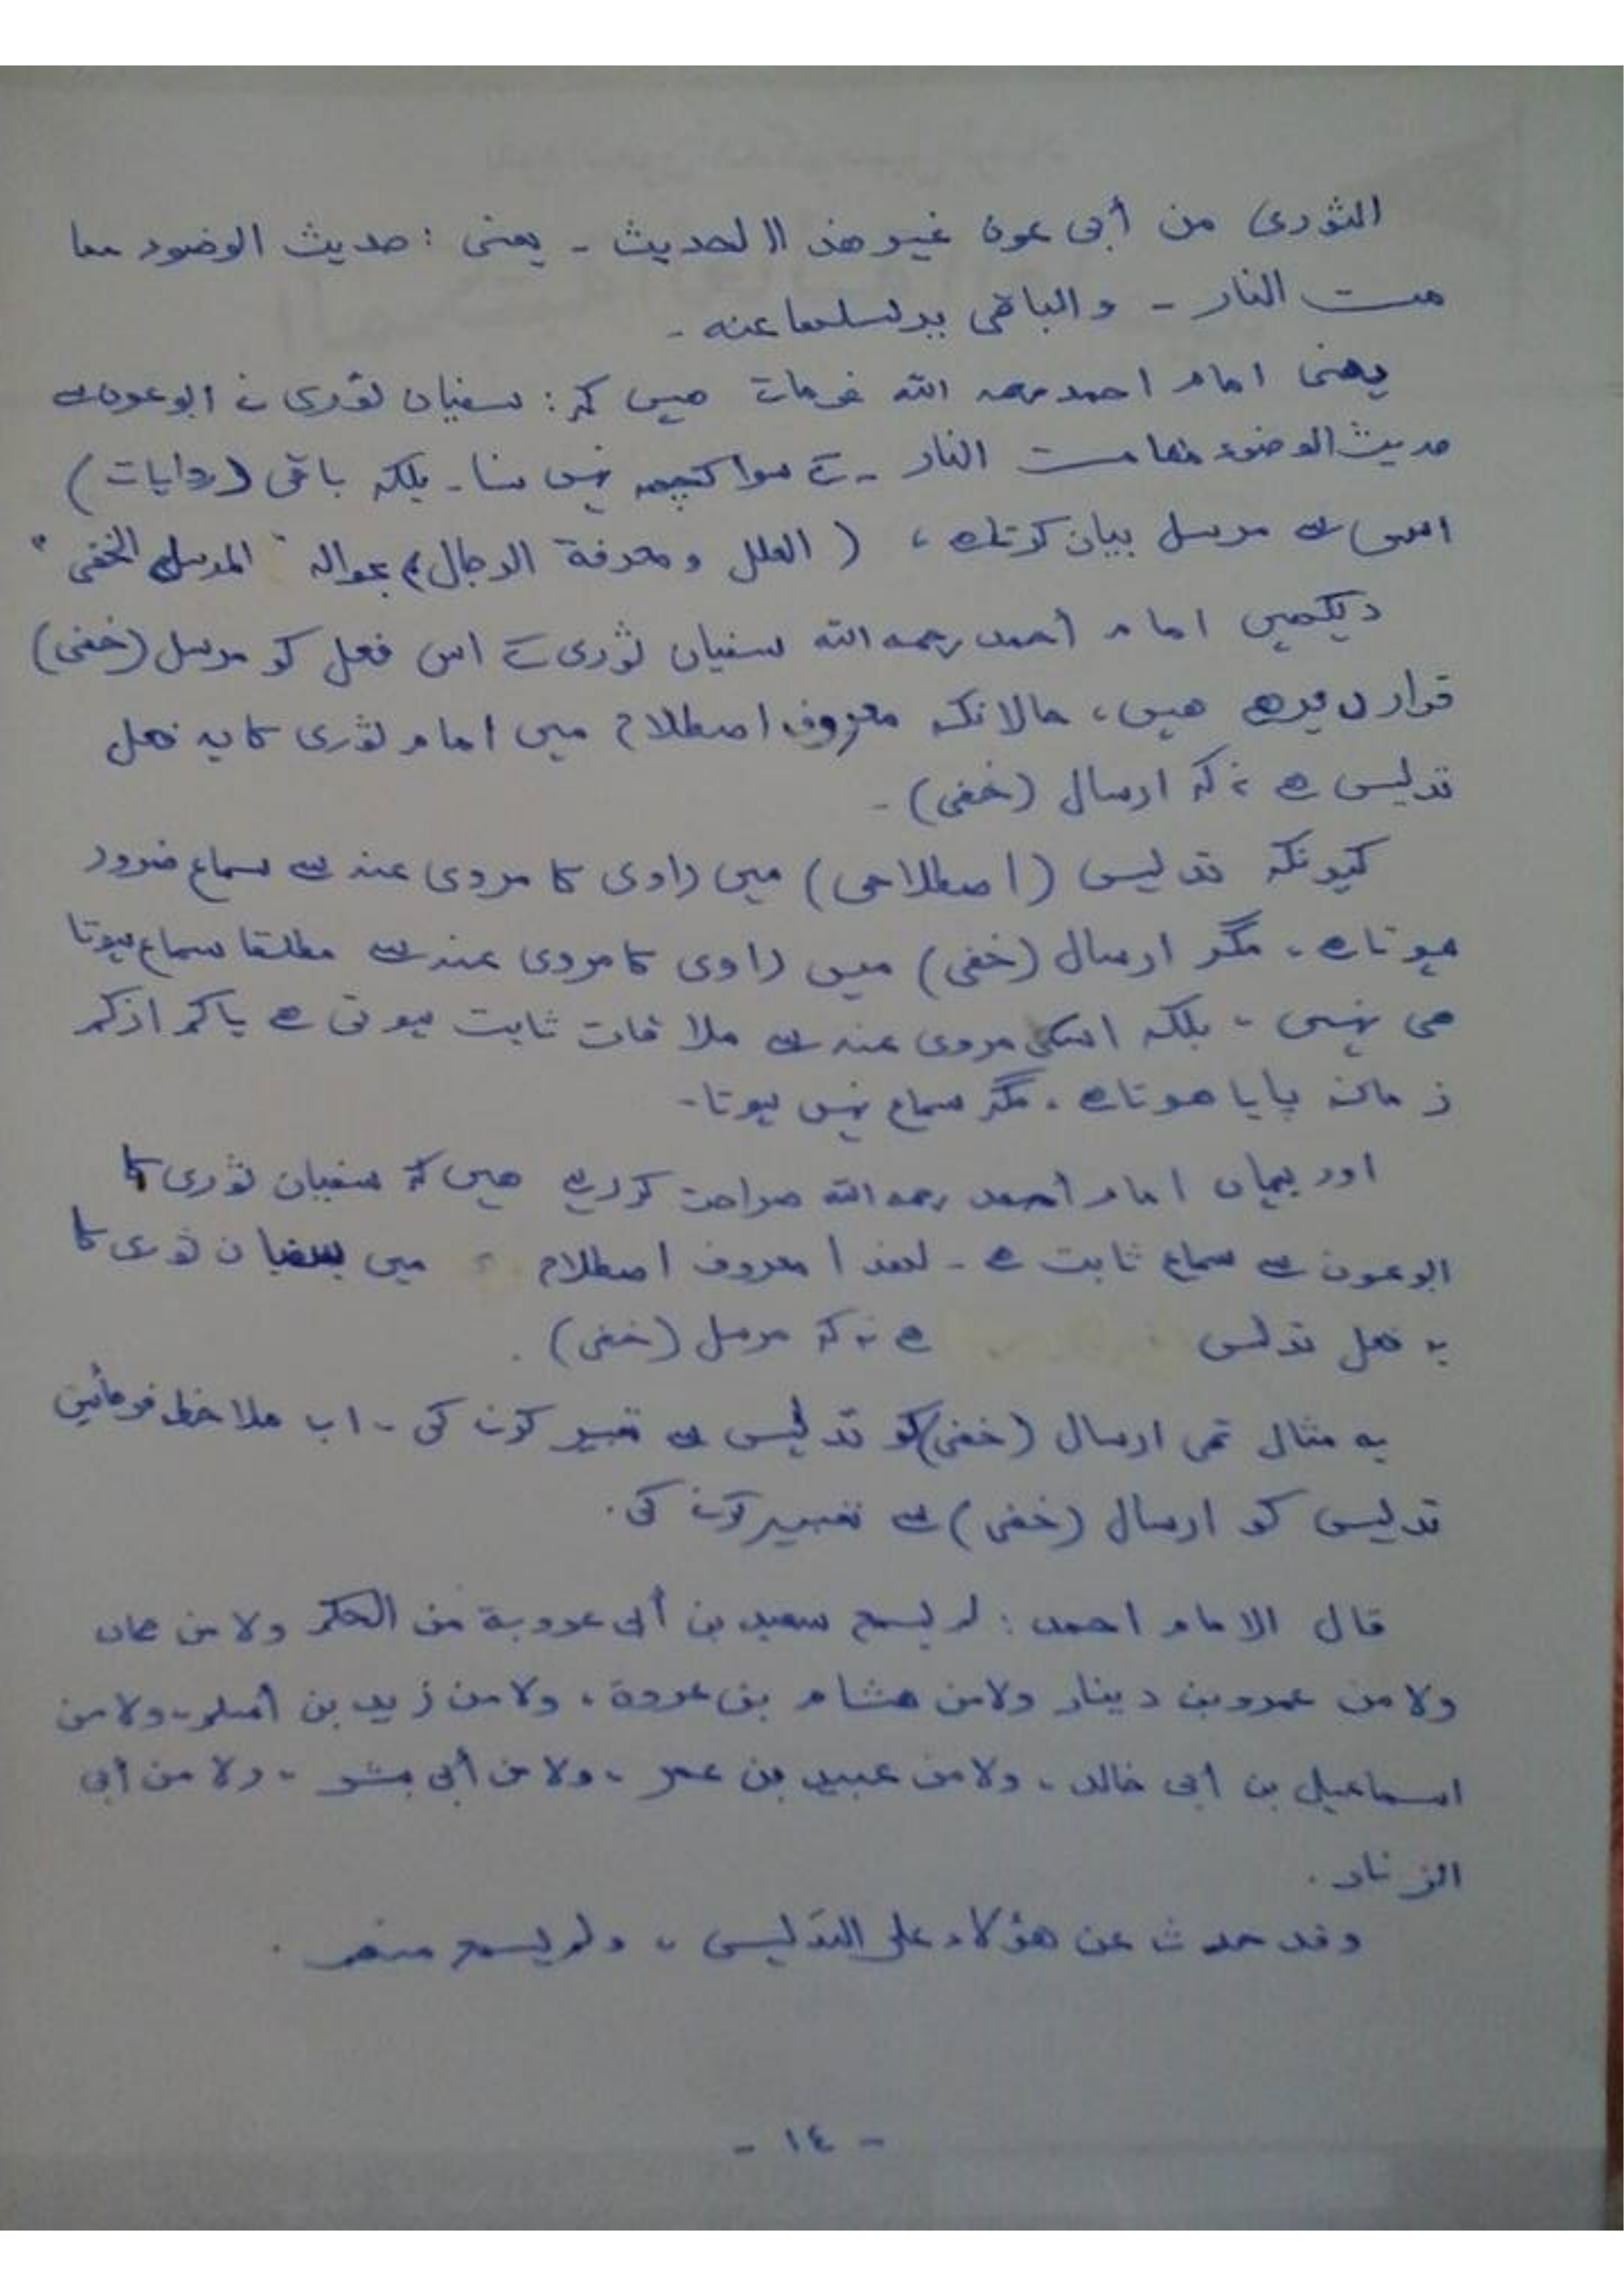 الثوری من أبی عون غیر هذا الحدیث ـ یعنی : حدیث الوضوء مما
مست النار ـ والباقی یرسلها عنه ـ
یعنی امام احمد رحمہ اللہ فرماتے ہیں کہ : سفیان ثوری نے ابوعون سے
حدیث الوضوء مما مست النار ـ کے سوا کچھ نہیں سنا ۔ بلکہ باقی (روایات)
اسی سے مرسل بیان کرتا ہے ، ( العلل ومعرفة الرجال ) بحوالہ " المرسل الخفی "
دیکھیں امام أحمد رحمہ اللہ سفیان ثوری کے اس فعل کو مرسل (خفی)
قرار دے رہے ہیں ، حالانکہ معروف اصطلاح میں امام ثوری کا یہ فعل
تدلیس ہے نہ کہ ارسال (خفی) ۔
کیونکہ تدلیس (اصطلاحی) میں راوی کا مروی عنہ سے سماع ضرور
ہوتا ہے ، مگر ارسال (خفی) میں راوی کا مروی عنہ سے مطلقا سماع ہوتا
ہی نہیں ، بلکہ اسکی مروی عنہ سے ملاقات ثابت ہوتی ہے یا کم از کم
زمانہ پایا ہوتا ہے ، مگر سماع نہیں ہوتا ۔
اور یہاں امام أحمد رحمہ اللہ صراحت کر رہے ہیں کہ سفیان ثوری کا
ابوعون سے سماع ثابت ہے ۔ لہذا معروف اصطلاح میں سفیان ثوری کا
یہ فعل تدلیس ہے نہ کہ مرسل (خفی) .
یہ مثال تھی ارسال (خفی) کو تدلیس سے تعبیر کرنے کی ۔ اب ملاحظہ فرمائیں
تدلیس کو ارسال (خفی) سے تعبیر کرنے کی .
قال الامام احمد : لم یسمع سعید بن أبی عروبة من الحکم ولا من حماد
ولا من عمرو بن دینار ولا من هشام بن عروة ، ولا من زید بن أسلم ، ولا من
اسماعیل بن ابی خالد ، ولا من عبید بن عمر ، ولا من أبی بشر ، ولا من أبی
الزناد .
وقد حدث عن هؤلاء علی التدلیس ، ولم یسمع منهم .
- ١٤ -